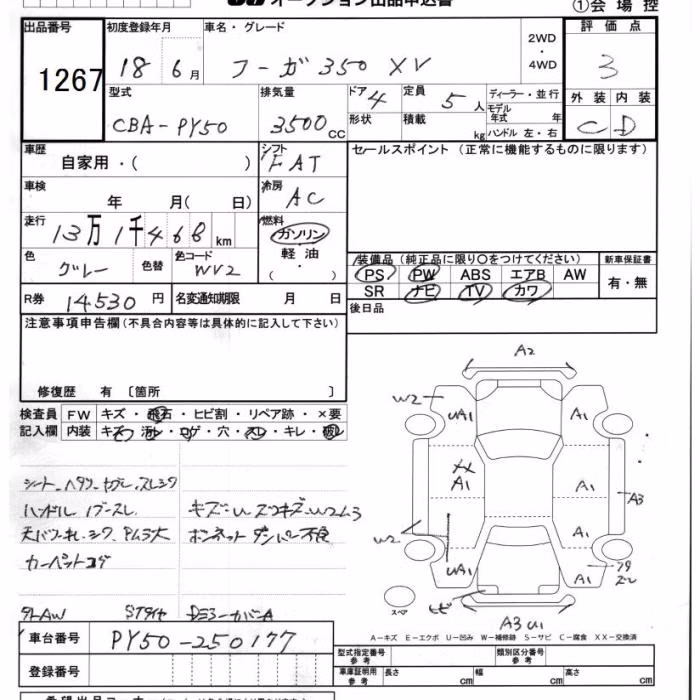 オークション出品申込書 ①会場控
出品番号 初度登録年月 車名・グレード 2WD・4WD 評価点
1267 18 6月 フーガ 350 XV 3
型式 排気量 ドア 4 定員 5人 ディーラー・並行 外装 内装
CBA-PY50 3500cc 形状 積載 kg モデル年式 年 C D
ハンドル 左・右
車歴 自家用・( ) シフト FAT セールスポイント (正常に機能するものに限ります)
車検 年 月( 日) 冷房 AC
走行 13万1千468km 燃料 ガソリン
軽油
( ・ )
色 グレー 色替 色コード WV2 装備品(純正品に限り○をつけてください) 新車保証書
PS PW ABS エアB AW 有・無
R券 14530円 名変通知期限 月 日 SR ナビ TV カワ
注意事項申告欄(不具合内容等は具体的に記入して下さい) 後日品
修復歴 有 〔箇所 〕
検査員 FW キズ・飛石・ヒビ割・リペア跡・×要
記入欄 内装 キズ・汚レ・コゲ・穴・スレ・キレ・破レ
シート ヘタリ ヤブレ スレ シワ
ハンドル
キズ~U スリキズ W2 ム3
ボンネットダンパー不良
カーペットコゲ
AW
A2
W2 UA1 A1
A1 A1
A3
W2 UA1 A1
スレ
ヒビ
スペ A3 U1
A-キズ E-エクボ U-凹み W-補修跡 S-サビ C-腐食 XX-交換済
車台番号 PY50-250177 型式指定番号 参考 類別区分番号 参考
登録番号 車庫証明用 参考 長さ cm 幅 cm 高さ cm